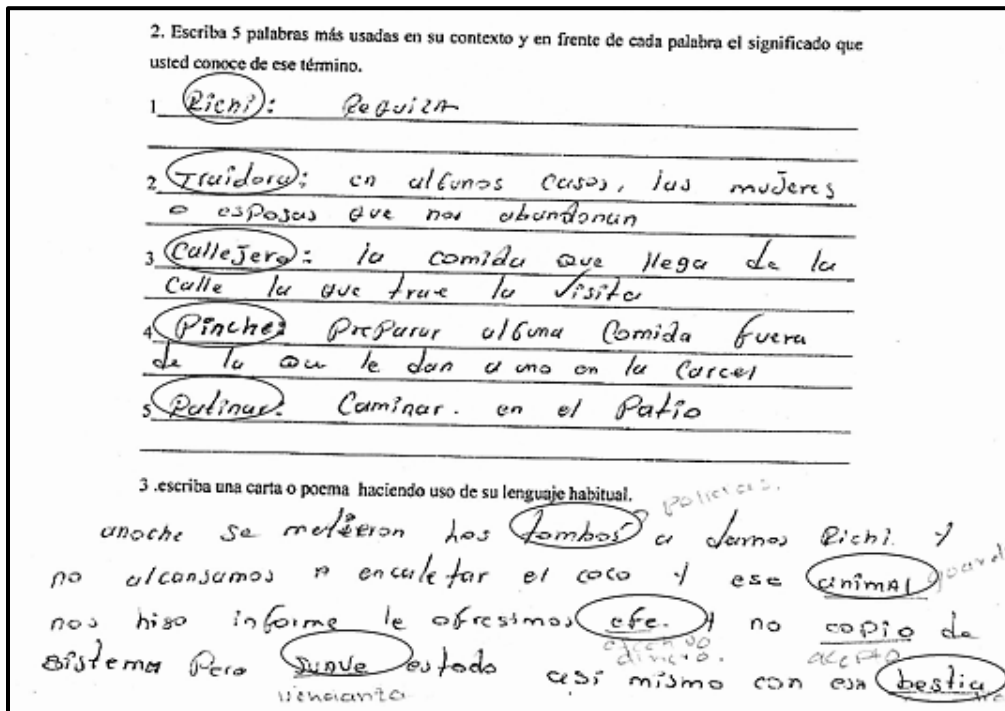 2. Escriba 5 palabras más usadas en su contexto y en frente de cada palabra el significado que
usted conoce de ese término.
1 Richi: Requiza
2 Traidora: en algunos casos, las mujeres
o esposas que nos abandonan
3 Callejera: la comida que llega de la
calle la que trae la visita
4 Pinche: preparar alguna comida fuera
de la que le dan a uno en la carcel
5 Patinar: Caminar. en el Patio
3 .escriba una carta o poema haciendo uso de su lenguaje habitual.
policias.
anoche se metieron los tombos a darnos Richi. y
no alcansamos a encaletar el coco y ese animal
nos hiso informe le ofresimos efe. y no copio de
dinero. acepto
sistema Pero suave es todo asi mismo con esa bestia